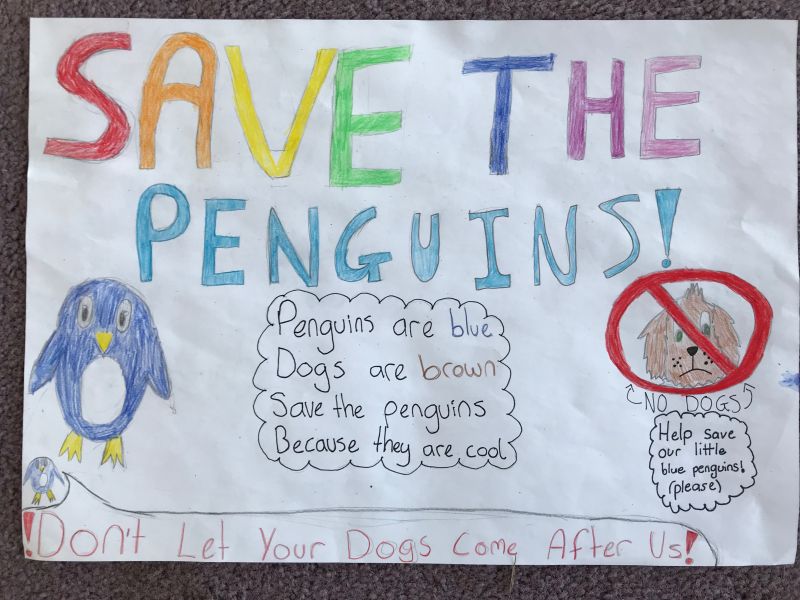 SAVE THE
PENGUINS!
Penguins are blue
Dogs are brown
Save the penguins
Because they are cool
NO DOGS
Help save
our little
blue penguins!
(please)
!Don't Let Your Dogs Come After Us!